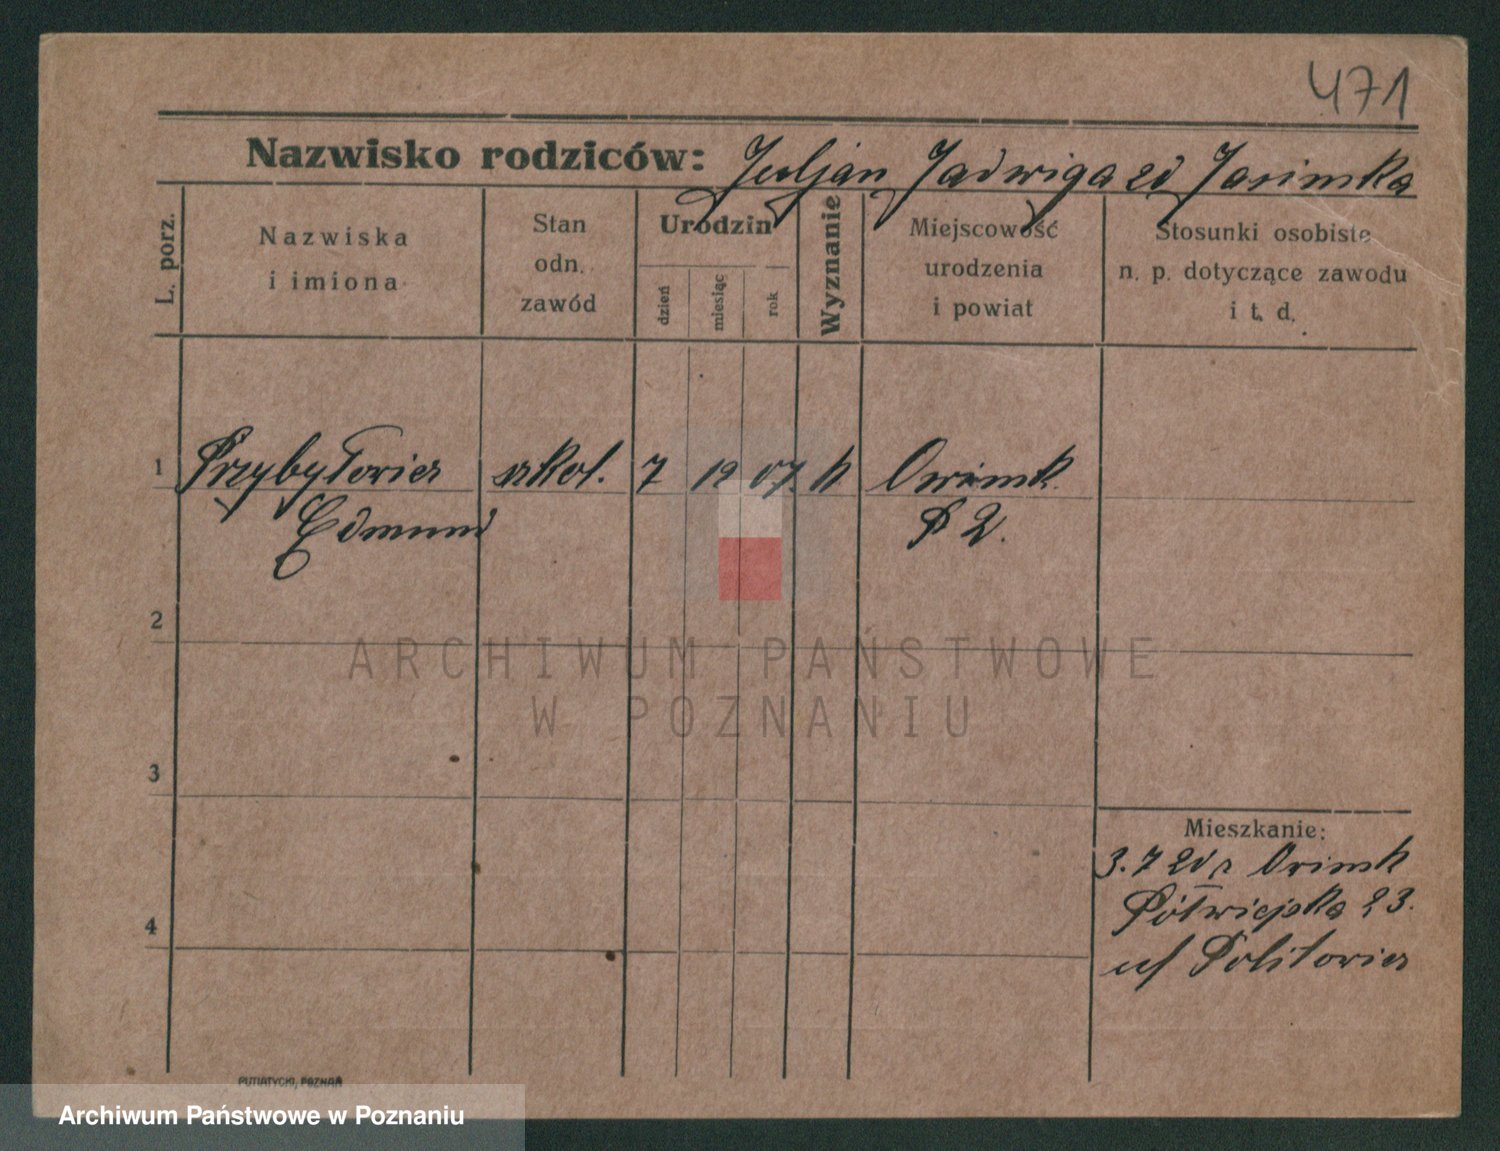 471
Nazwisko rodziców: Juljan Jadwiga zd Jasimska
L. porz.
Nazwiska
i imiona
Stan
odn.
zawód
Urodzin
dzień
miesiąc
rok
Wyznanie
Miejscowość
urodzenia
i powiat
Stosunki osobiste
n. p. dotyczące zawodu
i t. d.
1 Przybyłowicz szkol. 7 12 07. k
Edmund P 2.
2
3
4
Mieszkanie:
3.7 20 z
Półwiejska 23.
u/
PUTIATYCKI, POZNAŃ
ARCHIWUM PAŃSTWOWE
W POZNANIU
Archiwum Państwowe w Poznaniu